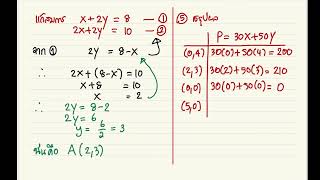 แก้สมการ x + 2y = 8 — ①
2x + 2y = 10 — ②
จาก ① 2y = 8 - x
∴ 2x + (8 - x) = 10
x + 8 = 10
x = 2
∴ 2y = 8 - 2
2y = 6
y = 6/2 = 3
นั่นคือ A (2,3)
⑤ สรุปผล
P = 30x + 50y
(0,4) 30(0) + 50(4) = 200
(2,3) 30(2) + 50(3) = 210
(0,0) 30(0) + 50(0) = 0
(5,0)